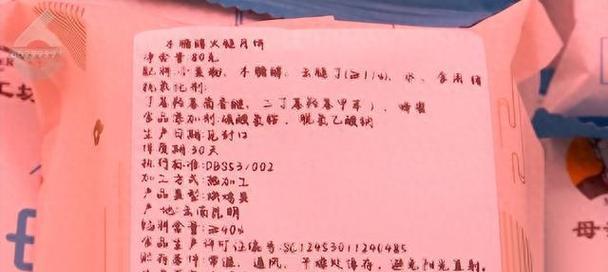 木醣醇火腿月饼
净含量:80克
配料:小麦粉、木糖醇、云腿丁(≥11%)、水、食用油
抗氧化剂:
丁基羟基茴香醚、二丁基羟基甲苯)、蜂蜜
食品添加剂:碳酸氢铵、脱氢乙酸钠
生产日期:见封口
保质期:30天
执行标准:DBS53/002
加工方式:热加工
产品类型:烘烤类
产地:云南昆明
馅料含量:≥40%
食品生产许可证编号:SC12453011240485
贮存条件:常温、通风、干燥处储存,避免阳光直射。
工坊
母